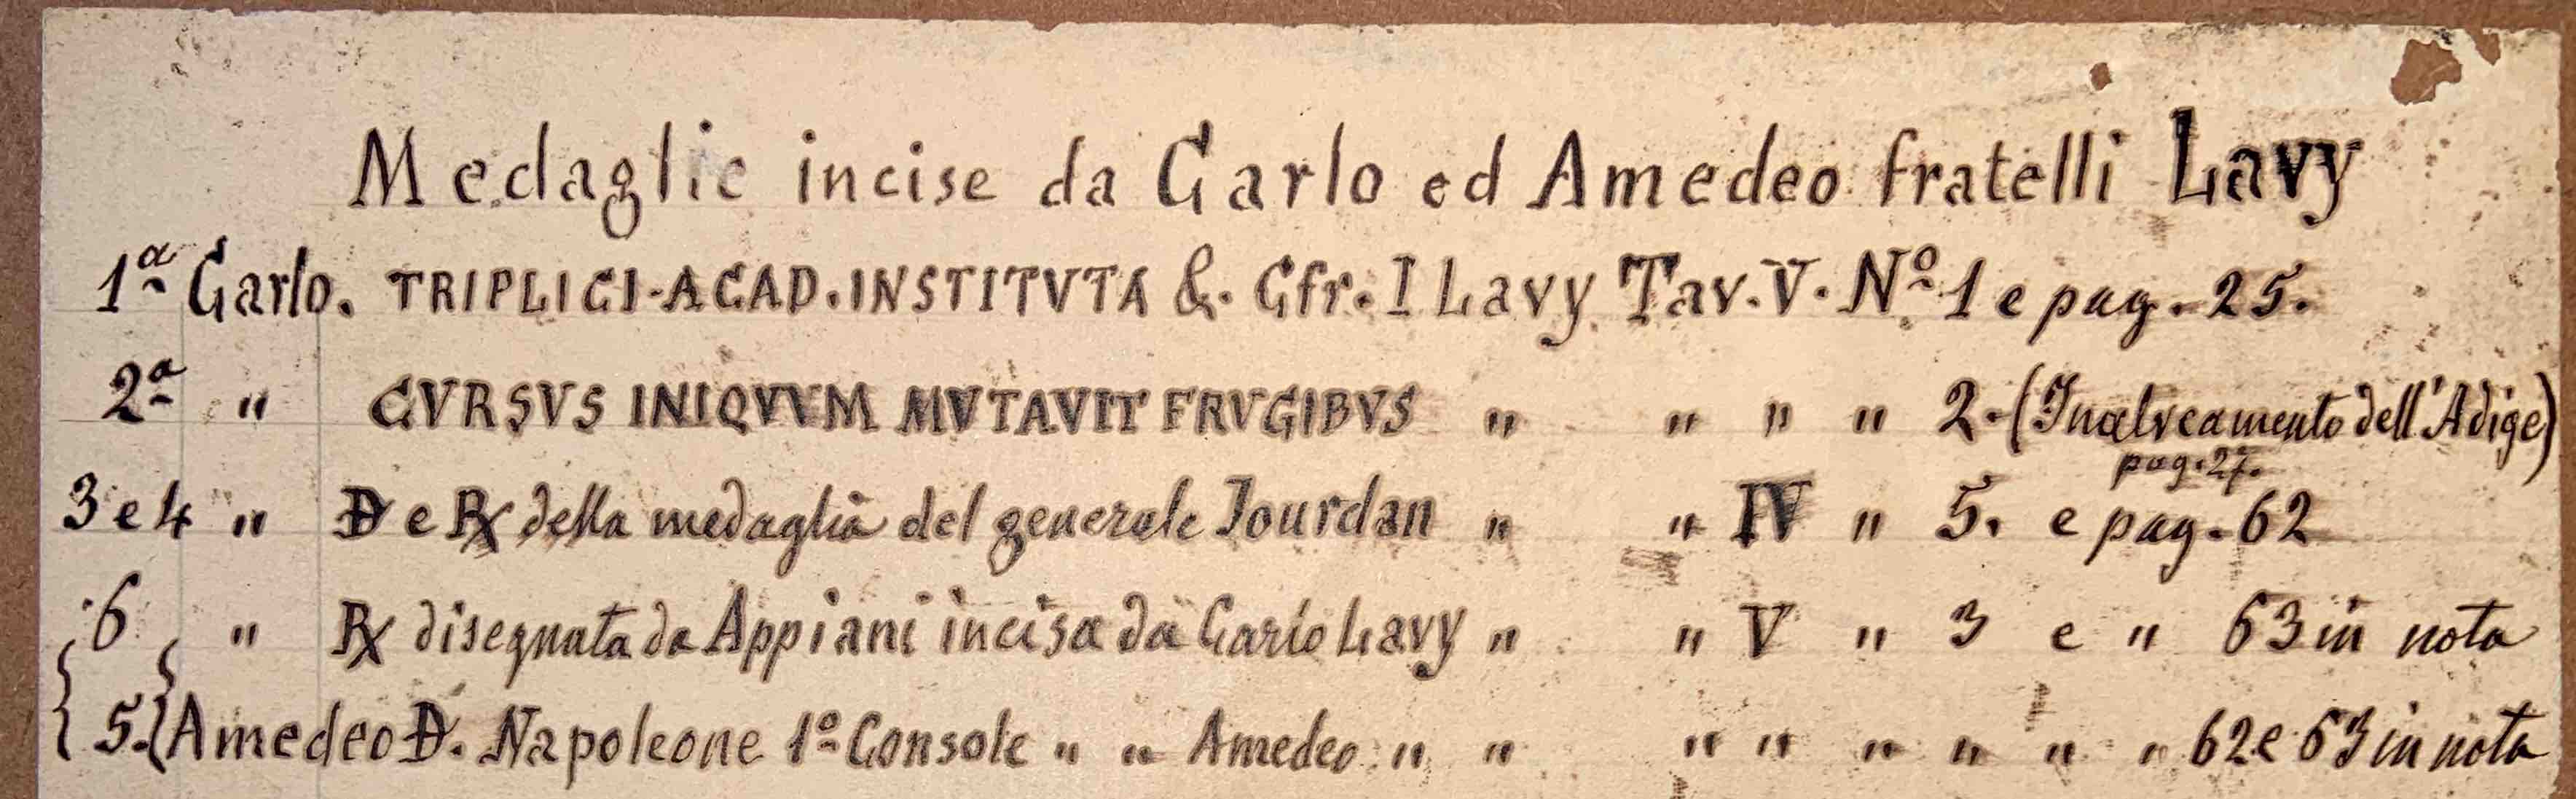 Medaglie incise da Carlo ed Amedeo fratelli Lavy
1ª Carlo. TRIPLICI-ACAD.INSTITVTA &. Cfr. I Lavy Tav. V. Nº 1 e pag. 25.
2ª " CVRSVS INIQVVM MVTAVIT FRVGIBVS " " " " 2-(Inalveamento dell'Adige)
pag. 27.
3 e 4 " D e R della medaglia del generale Jourdan " " IV " 5. e pag. 62
6 " R disegnata da Appiani incisa da Carlo Lavy " " V " 3 e " 63 in nota
5. Amedeo D. Napoleone 1º Console " " Amedeo " " " " " " " " 62 e 63 in nota